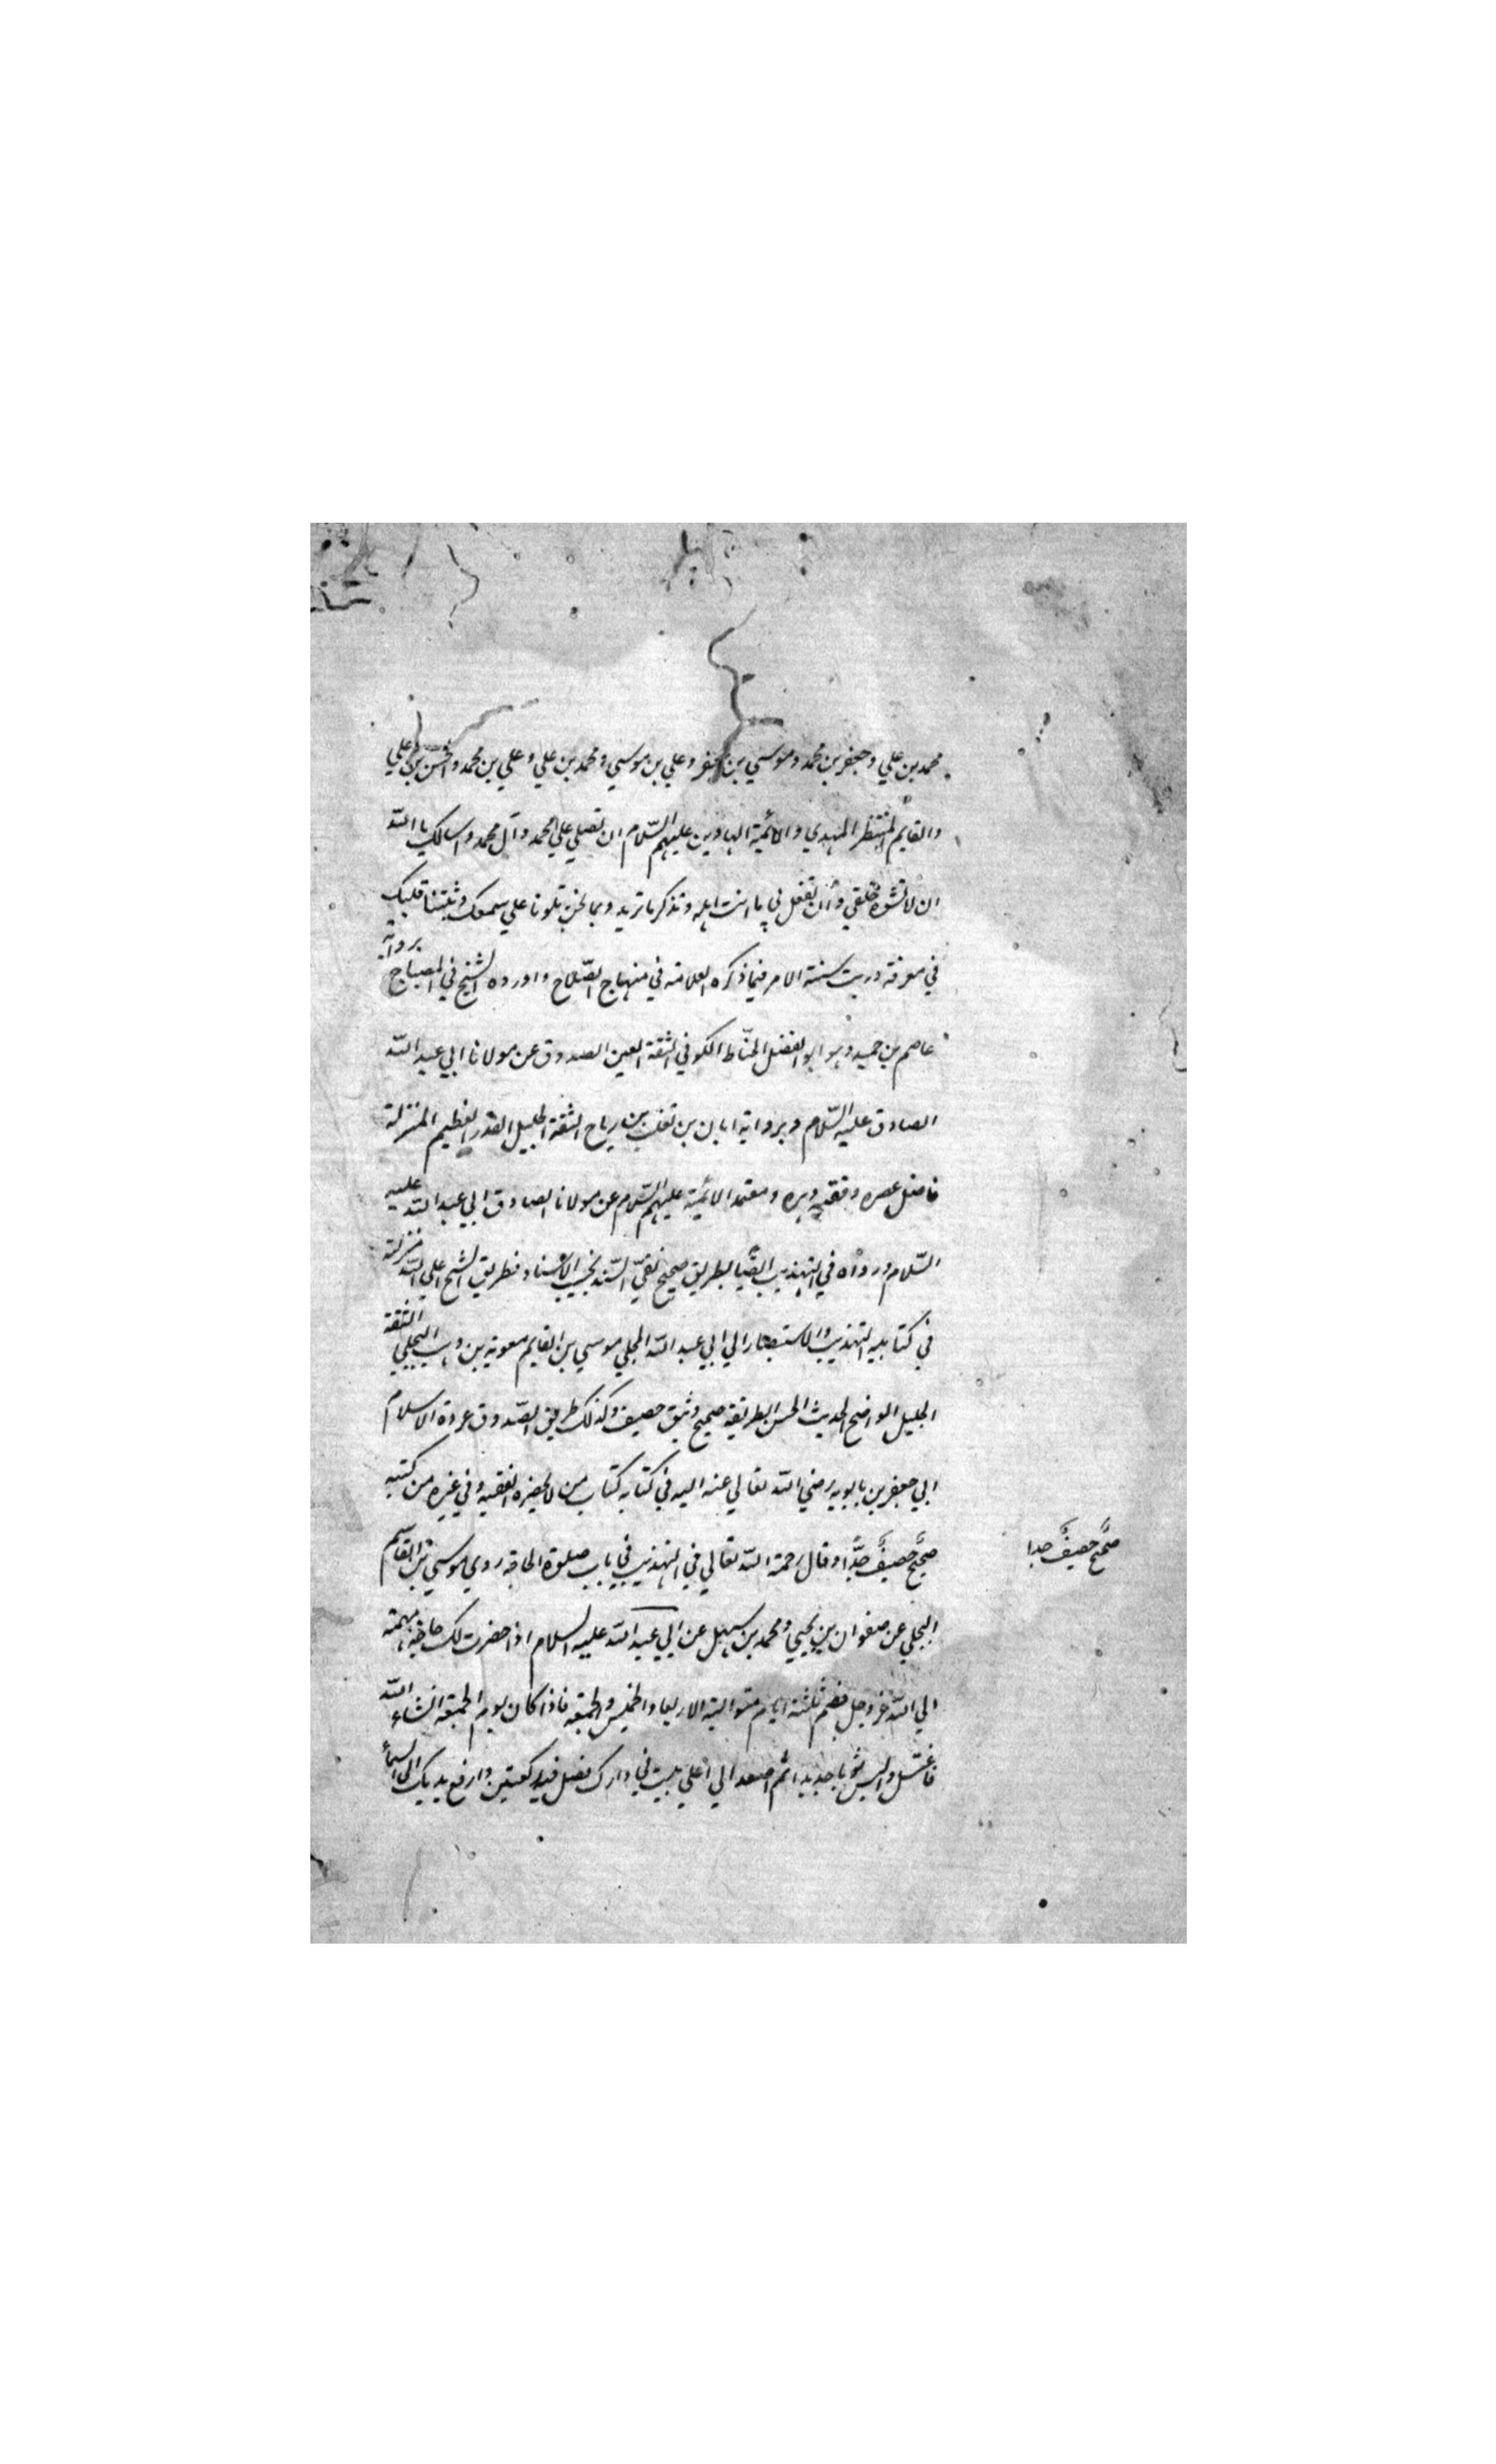 محمد بن علي وجعفر بن محمد وموسي بن جعفر وعلي بن موسي ومحمد بن علي وعلي بن محمد والحسن بن علي
والقايم المنتظر المهدي والائمية الهادين عليهم السّلام ان تصلي علي محمد وآل محمد واسالك يا اللّه
ان لا تشوه خلقي وأن تفعل بي ما انت اهله وتذكر ما تريد وبما نحن تلونا علي سمعك وثبتنا قلبك
في معرفة دريت سنة الامر فيما ذكره العلامه في منهاج الصّلاح واورده الشيخ في المصباح بروايه
عاصم بن حميد وهو ابو الفضل الحنّاط الكوفي الثقة العين الصدوق عن مولانا ابي عبد اللّه
الصادق عليه السّلام وبرواية ابان بن تغلب بن رباح الثقة الجليل القدر العظيم المنزلة
فاضل عصره وفقيه دهره ومعتمد الائمية عليهم السّلام عن مولانا الصادق ابي عبد اللّه عليه
السّلام ورواه في التهذيب ايضًا بطريق صحيح نقيّ السّند نجيب الاسناد فطريق الشيخ اعلي اللّه منزلته
في كتابيه التهذيب والاستبصار الي ابي عبد اللّه البجلي موسي بن القايم معوية بن وهب البجلي الثقة
الجليل الواضح الحديث الحسن الطريقة صحيح وثيق حصيف وكذلك طريق الصّدوق عروة الاسلام
ابي جعفر بن بابويه رضي اللّه تعالي عنه اليه في كتابه كتاب من لا يحضره الفقيه وفي غيره من كتبه
صحيحٌ حصيفٌ جدًّا وقال رحمة اللّه تعالي في التهذيب في باب صلوة الحاجة روي موسي بن القاسم
صحيحٌ حصيفٌ جدا
البجلي عن صفوان بن يحيي ومحمد بن سهل عن ابي عبد اللّه عليه السلام اذا حضرت لك حاجة مهمة
الي اللّه عز وجل فصم ثلثة ايام متوالية الاربعا والخميس والجمعة فاذا كان يوم الجمعة انشاء اللّه
فاغتسل والبس ثوبا جديدا ثم اصعد الي اعلي بيت في دارك فصل فيه ركعتين وارفع يديك الي السمأ